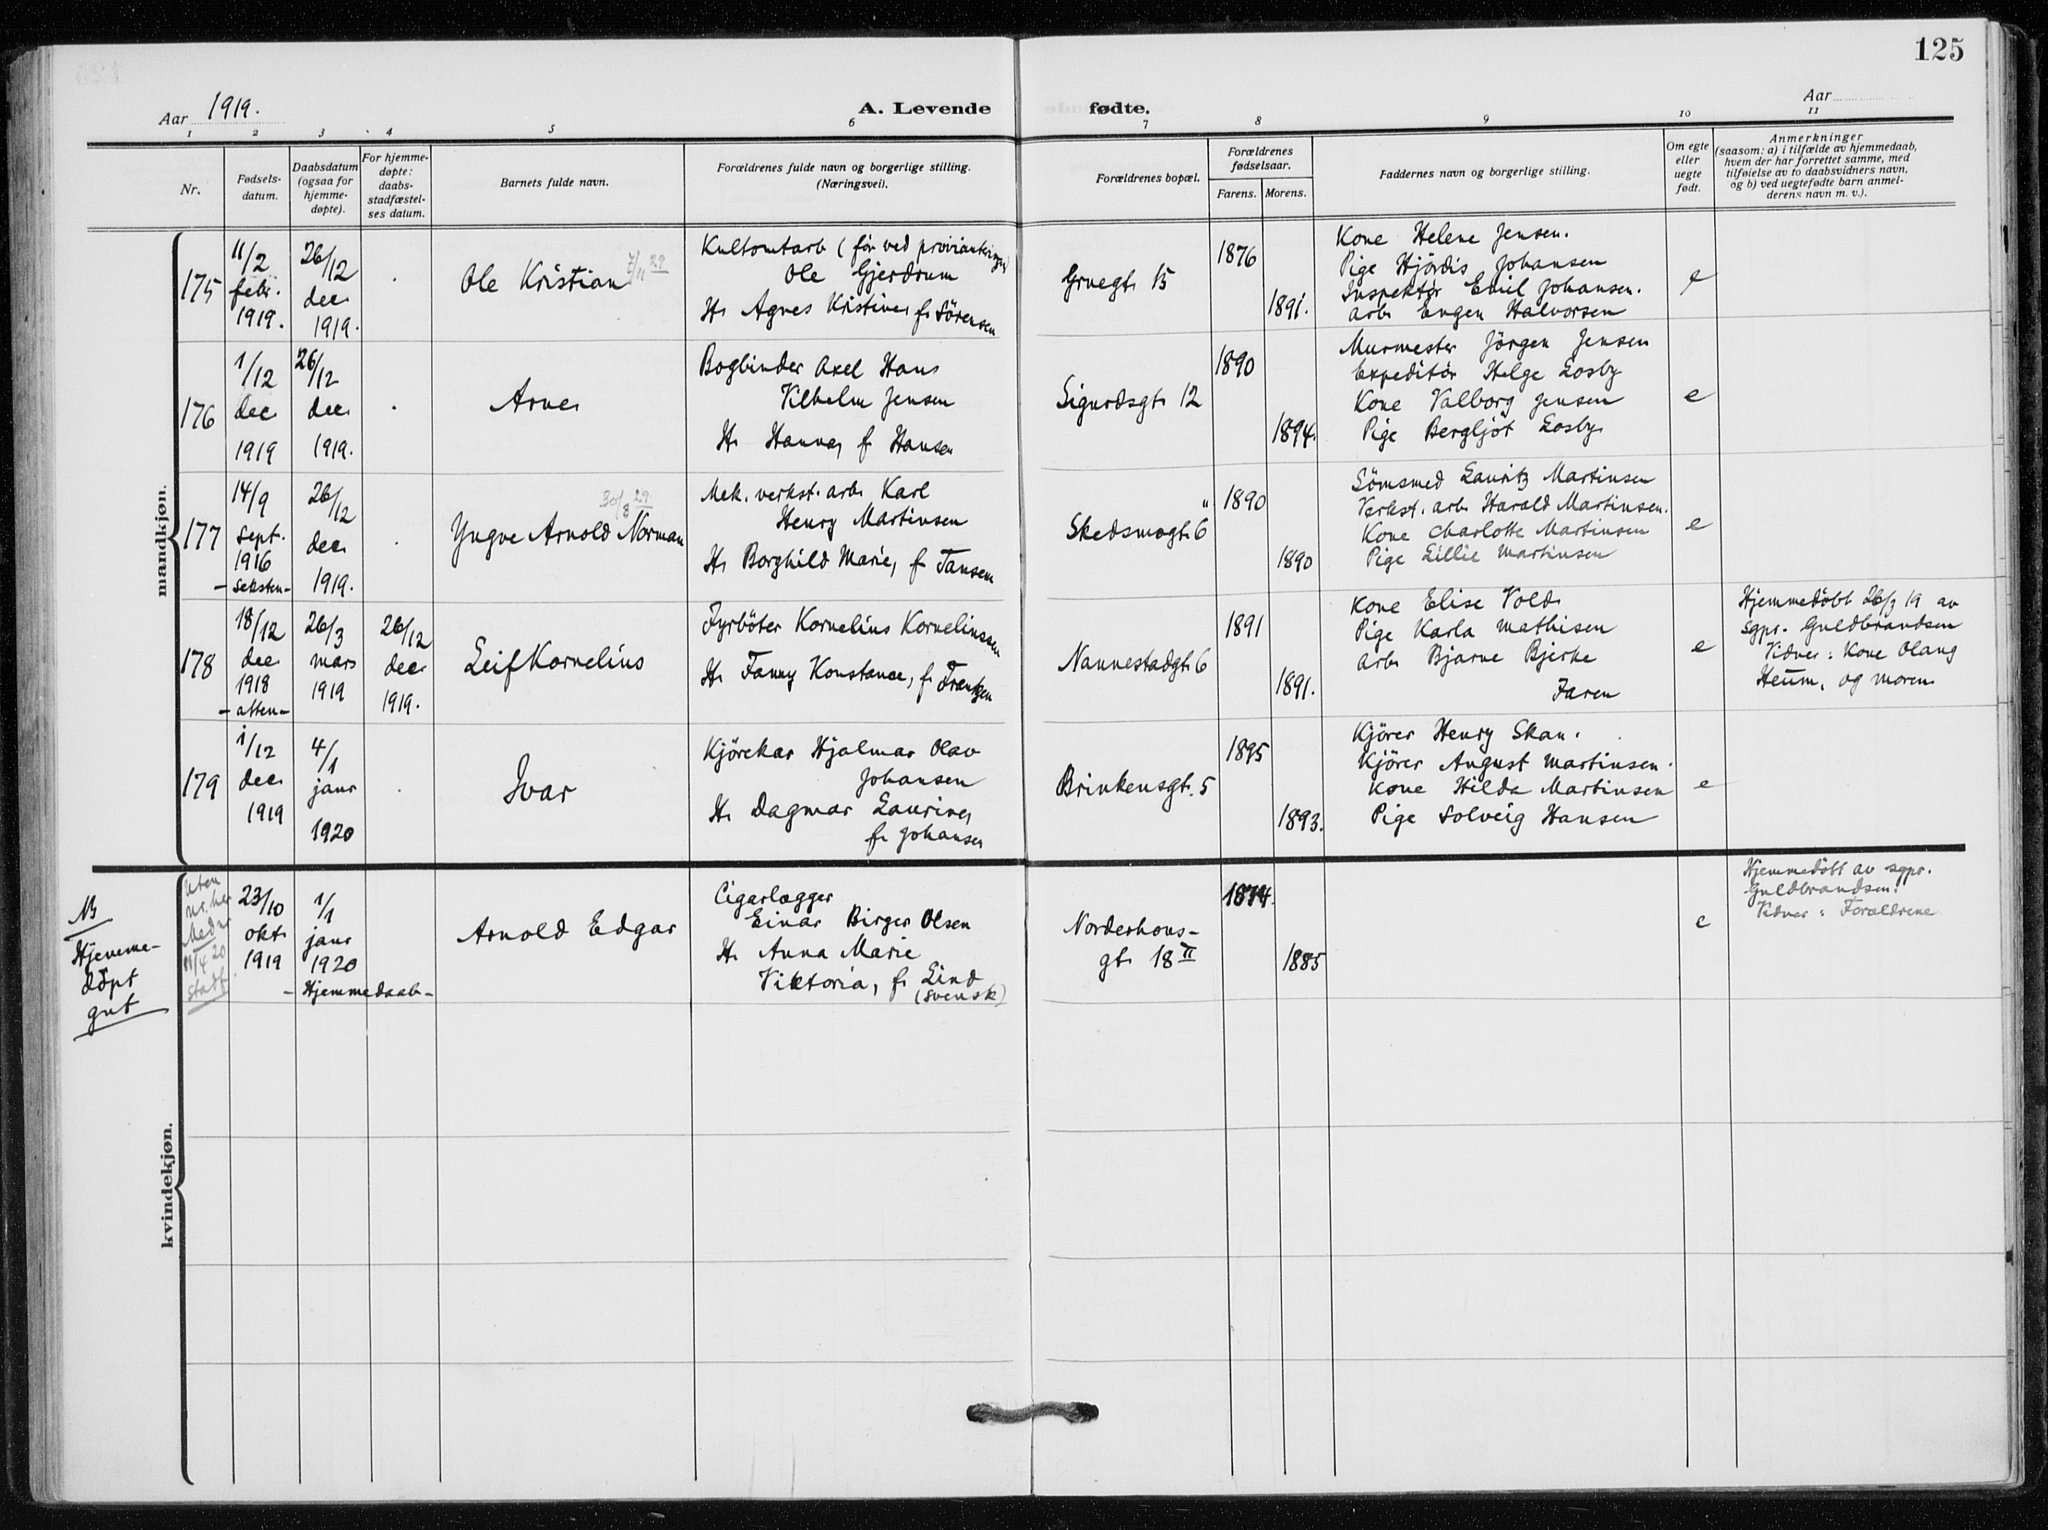 125
Aar 1919.
A. Levende fødte.
Aar
1 2 3 4 5 6 7 8 9 10 11
Nr.
Fødsels-
datum.
Daabsdatum
(ogsaa for
hjemme-
døpte).
For hjemme-
døpte:
daabs-
stadfæstel-
ses datum.
Barnets fulde navn.
Forældrenes fulde navn og borgerlige stilling.
(Næringsvei).
Forældrenes bopæl.
Forældrenes
fødselsaar.
Farens. Morens.
Faddernes navn og borgerlige stilling.
Om egte
eller
uegte
født.
Anmerkninger
(saasom: a) i tilfælde av hjemmedaab,
hvem der har forrettet samme, med
tilføielse av to daabsvidners navn,
og b) ved uegtefødte barn anmel-
derens navn m. v.).
mandkjøn.
175
11/2
febr.
1919.
26/12
dec
1919.
Ole Kristian
7/11 29
(før ved
Ole Gjerdrum
H. Agnes Kristine f. Sørensen
Gruegt. 15
1876
1891.
Kone Helene Jensen.
Pige Hjördis Johansen
Inspektør Emil Johansen.
arb. Eugen Halvorsen
e
176
1/12
dec
1919
26/12
dec
1919.
Arne
Bogbinder Axel Hans
Vilhelm Jensen
H. Hanna, f. Hansen
Sigurdsgt. 12
1890
1894.
Murmester Jörgen Jensen
Expeditör Helge Losby
Kone Valborg Jensen
Pige Bergljöt Losby
e
177
14/9
Sept.
1916
- seksten -
26/12
dec
1919.
Yngve Arnold Norman
30/8 29.
Mek. verkst. arb. Karl
Henry Martinsen
H. Borghild Marie, f. Jansen
Skedsmogt. 6
1890
1890
Sömsmed Lauritz Martinsen
Verkst. arb. Harald Martinsen.
Kone Charlotte Martinsen
Pige Lillie Martinsen
e
178
18/12
dec
1918
- atten -
26/3
mars
1919
26/12
dec
1919.
Leif Kornelius
Fyrböter Kornelius Kornelinssen
H. Fanny Konstance, f. Frantzen
Nannestadgt. 6
1891
1891.
Kone Elise Vold
Pige Karla Mathisen
arb. Bjarne Bjerke
Faren
e
Hjemmedöbt 26/3 19 av
sgpr. Guldbrandsen
Vidner: Kone Olang
Heum, og moren
179
1/12
dec
1919
4/1
janr
1920
Ivar
Kjörekar Hjalmar Olav
Johansen
H. Dagmar Laurine,
f. Johansen
Brinkensgt. 5
1895
1893.
Kjörer Henry Skau.
Kjörer August Martinsen.
Kone Hilda Martinsen
Pige Solveig Hansen
e
kvindekjøn.
NB
Hjemme-
döpt
gut
uten
nr. her
Med nr
11/4 20
stadf.
23/10
okt
1919
1/1
janr
1920
- Hjemmedaab -
Arnold Edgar
Cigarlægger
Einar Birger Olsen
H. Anna Marie
Viktoria, f. Lind
(svensk)
Norderhous-
gt. 18 II
1874.
1885
e
Hjemmedöbt av sgpr.
Guldbrandsen.
Vidner: Forældrene